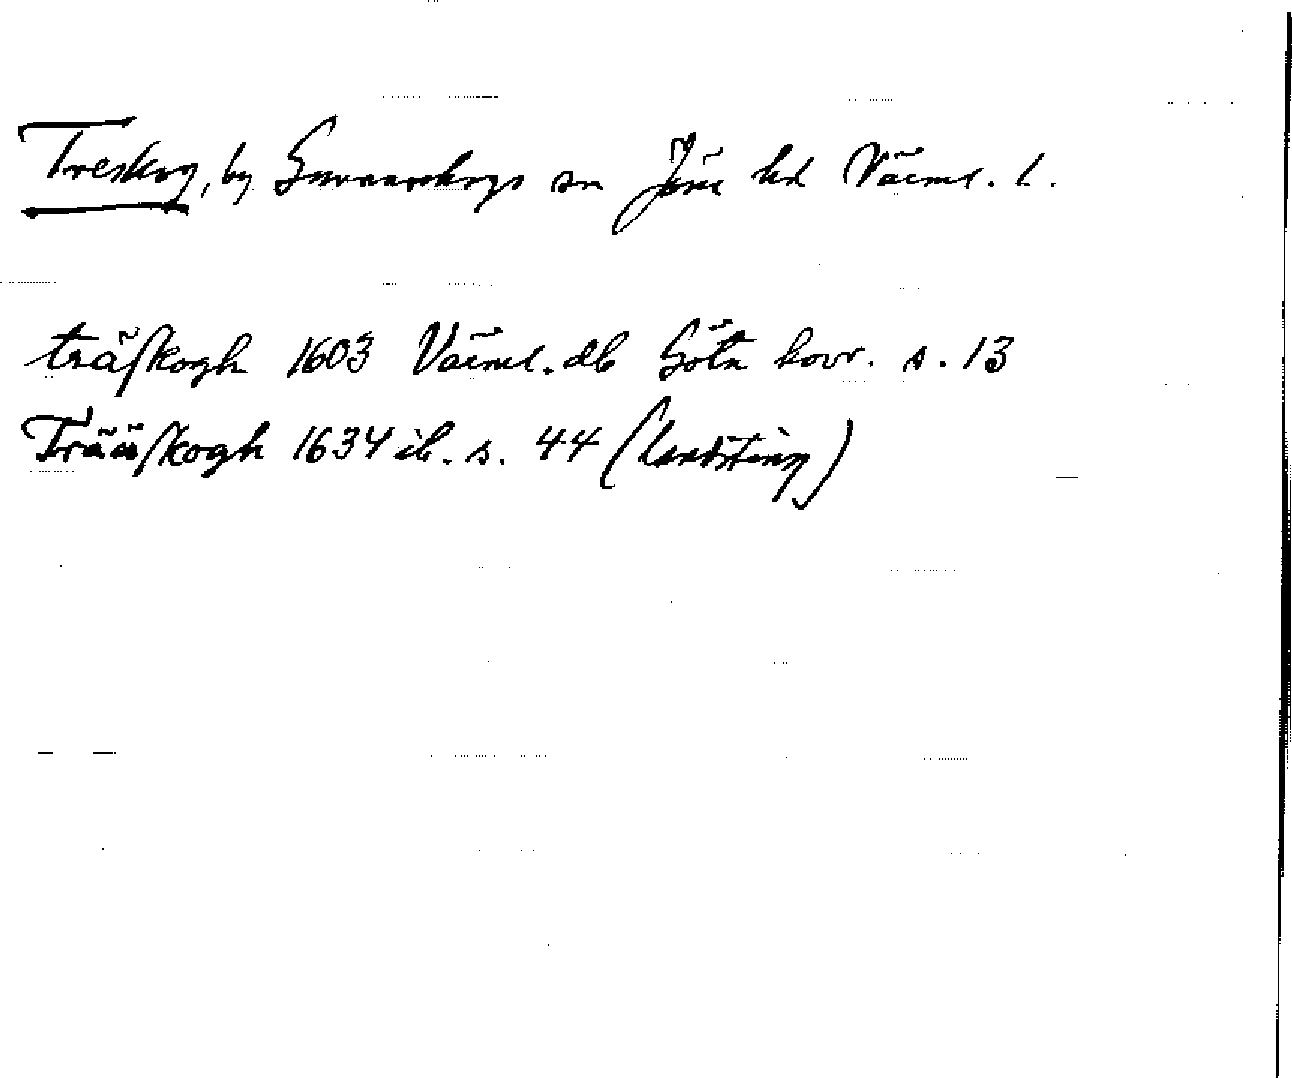 Treskog, by Gunnarskogs sn Jösse hd Värml. l.
träſkogh 1603 Värml. db Göta hovr. s. 13
Trääſkogh 1634 ib. s. 44 (landsting)